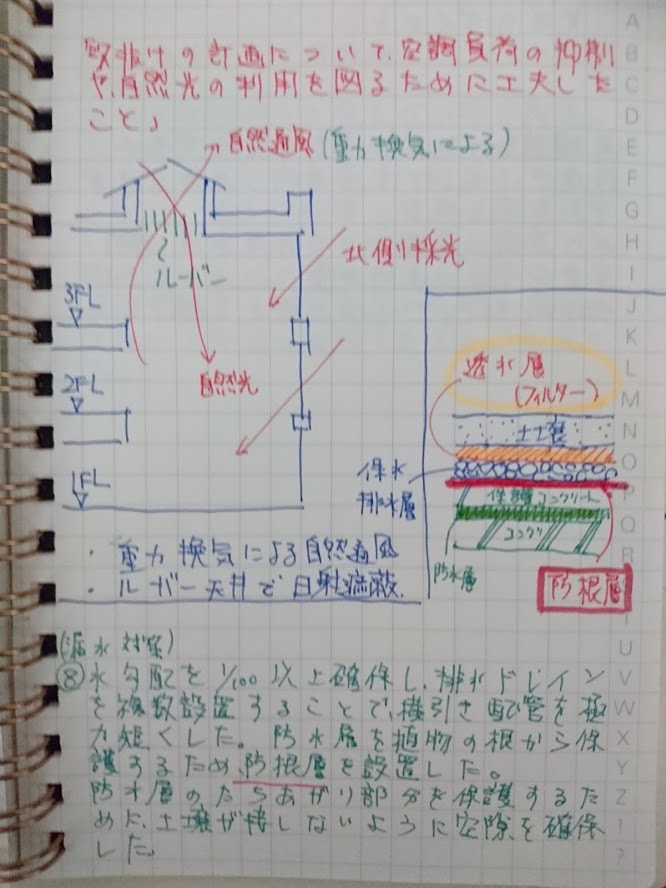 吹抜けの計画について、空調負荷の抑制
や、自然光の利用を図るために工夫した
こと」
自然通風(重力換気による)
北側採光
ルーバー
3FL
自然光
2FL
1FL
透水層
(フィルター)
土壌
保水
排水層
保護コンクリート
コンクリ
防水層
防根層
・重力換気による自然通風
・ルーバー天井で日射遮蔽
(漏水対策)
⑧水勾配を1/100以上確保し、排水ドレイン
を複数設置することで、横引き配管を極
力短くした。防水層を植物の根から保
護するため、防根層を設置した。
防水層のたちあがり部分を保護するた
めに、土壌が接しないように空隙を確保
した。
A
B
C
D
E
F
G
H
I
J
K
L
M
N
O
P
Q
R
T
U
V
W
X
Y
Z
!
?